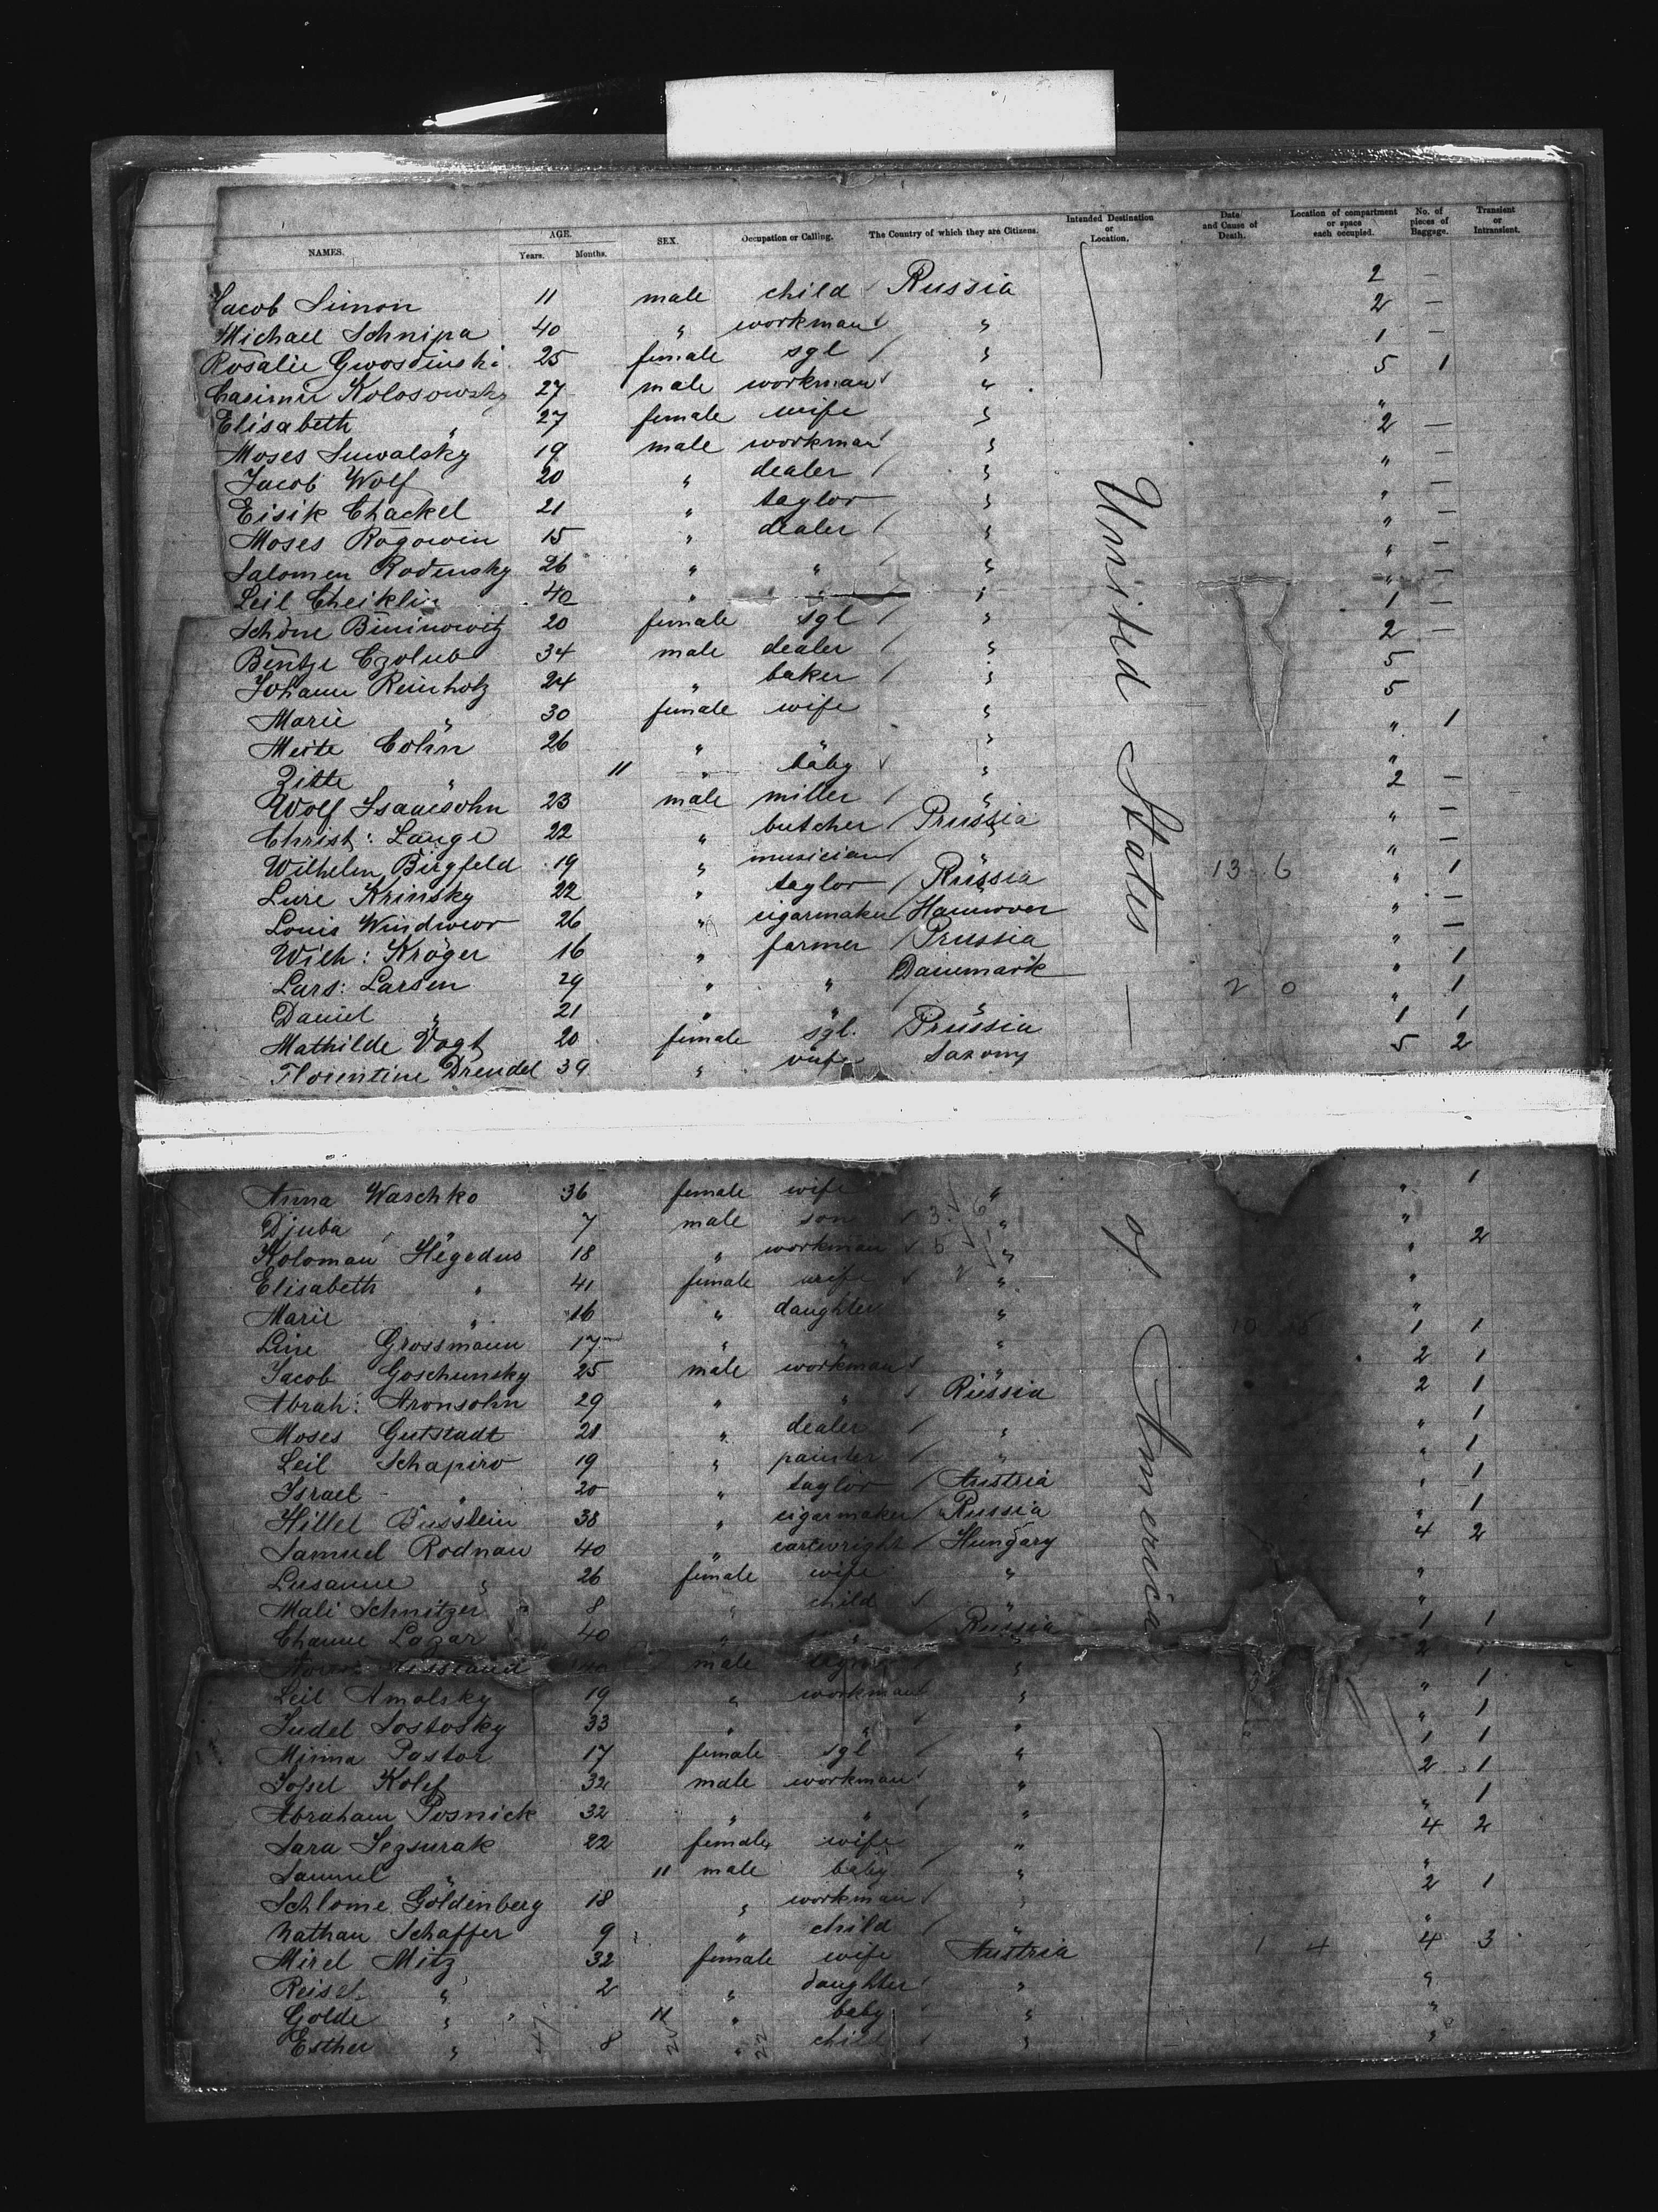 NAMES. AGE. Years. Months. SEX. Occupation or Calling. The Country of which they are Citizens. Intended Destination or Location. Date and Cause of Death. Location of compartment or space each occupied. No. of pieces of Baggage. Transient or Intransient.
Jacob Simon 11 male child Russia 2 —
Michael Schnipa 40 " workman " 2 —
Rosalie Gwosdinski 25 female sgl " 1 —
Casimir Kolosowsky 27 male workman " 5 1
Elisabeth " 27 female wife " "
Moses Suwalsky 19 male workman " 2 —
Jacob Wolf 20 " dealer " " —
Eisik Chackel 21 " taylor " " —
Moses Rogowin 15 " dealer " " —
Salomon Rodensky 26 " " " " —
Leil Cheiklin 40 " " " " —
Schöne Bininowitz 20 female sgl " 1 —
Bentze Czolub 34 male dealer " 2 —
Johann Reinholz 24 " baker " 5
Marie " 30 female wife " 5
Meite Cohn 26 " " " " 1
Zitte " 11 " baby " "
Wolf Isaacsohn 23 male miller " 2 —
Christ: Lange 22 " butcher Prussia " —
Wilhelm Bürgfeld 19 " musician " " —
Lure Krinsky 22 " taylor Russia 13 6 " 1
Louis Windwer 26 " cigarmaker Hannover " —
Wilh: Kröger 16 " farmer Prussia " —
Lars: Larsen 29 " " Dänemark " 1
Daniel " 21 " " " 2 0 " 1
Mathilde Vogt 20 female sgl. Prussia 1 1
Florentine Drendel 39 " wife Saxony 5 2
United States
Anna Waschko 36 female wife " " 1
Djuba " 7 male son 3 6 " "
Koloman Hegedus 18 " workman 5 " " 2
Elisabeth " 41 female wife " "
Marie " 16 " daughter " "
Line Grossmann 17 " " " 10 1 1
Jacob Goschunsky 25 male workman " 2 1
Abrah: Aronsohn 29 " " Russia 2 1
Moses Gutstadt 21 " dealer " " 1
Leil Schapiro 19 " painter " " 1
Israel " 20 " taylor Austria " 1
Hillel Büsslein 38 " cigarmaker Russia " 1
Samuel Rodnau 40 " cartwright Hungary 4 2
Susanne " 26 female wife " "
Mali Schnitzer 8 " child " "
Channe Lazar 40 " " Russia 1 1
male " 2 1
Leil Amolsky 19 " workman " " 1
Judel Sostosky 33 " " " " 1
Minna Pastor 17 female sgl " 1 1
Jossel Kolef 32 male workman " 2 1
Abraham Posnick 32 " " " " 1
Sara Sezsurak 22 female wife " 4 2
Samuel " 11 male baby " "
Schlome Goldenberg 18 " workman " 2 1
Nathan Schaffer 9 " child " "
Mirel Mitz 32 female wife Austria 1 4 4 3
Reisel " 2 " daughter " "
Golde " 11 " baby " "
Esther " 8 " child " "
47 20 22
of America